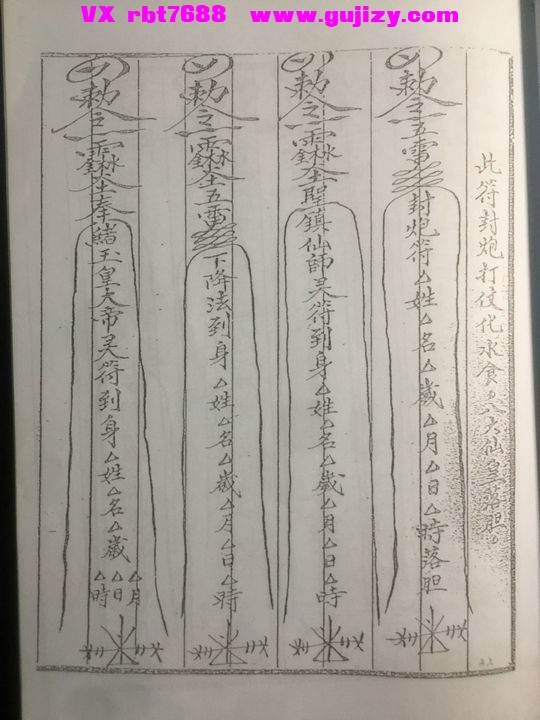 VX rbt7688 www.gujizy.com
此符封炮打仗化水食八大仙皇落胆
勅令五雷封炮符△姓△名△歲△月△日△時落胆
勅令聖鎮仙師灵符到身△姓△名△歲△月△日△時
勅令五雷下降法到身△姓△名△歲△月△日△時
勅令奉請玉皇大帝灵符到身△姓△名△歲△月△日△時